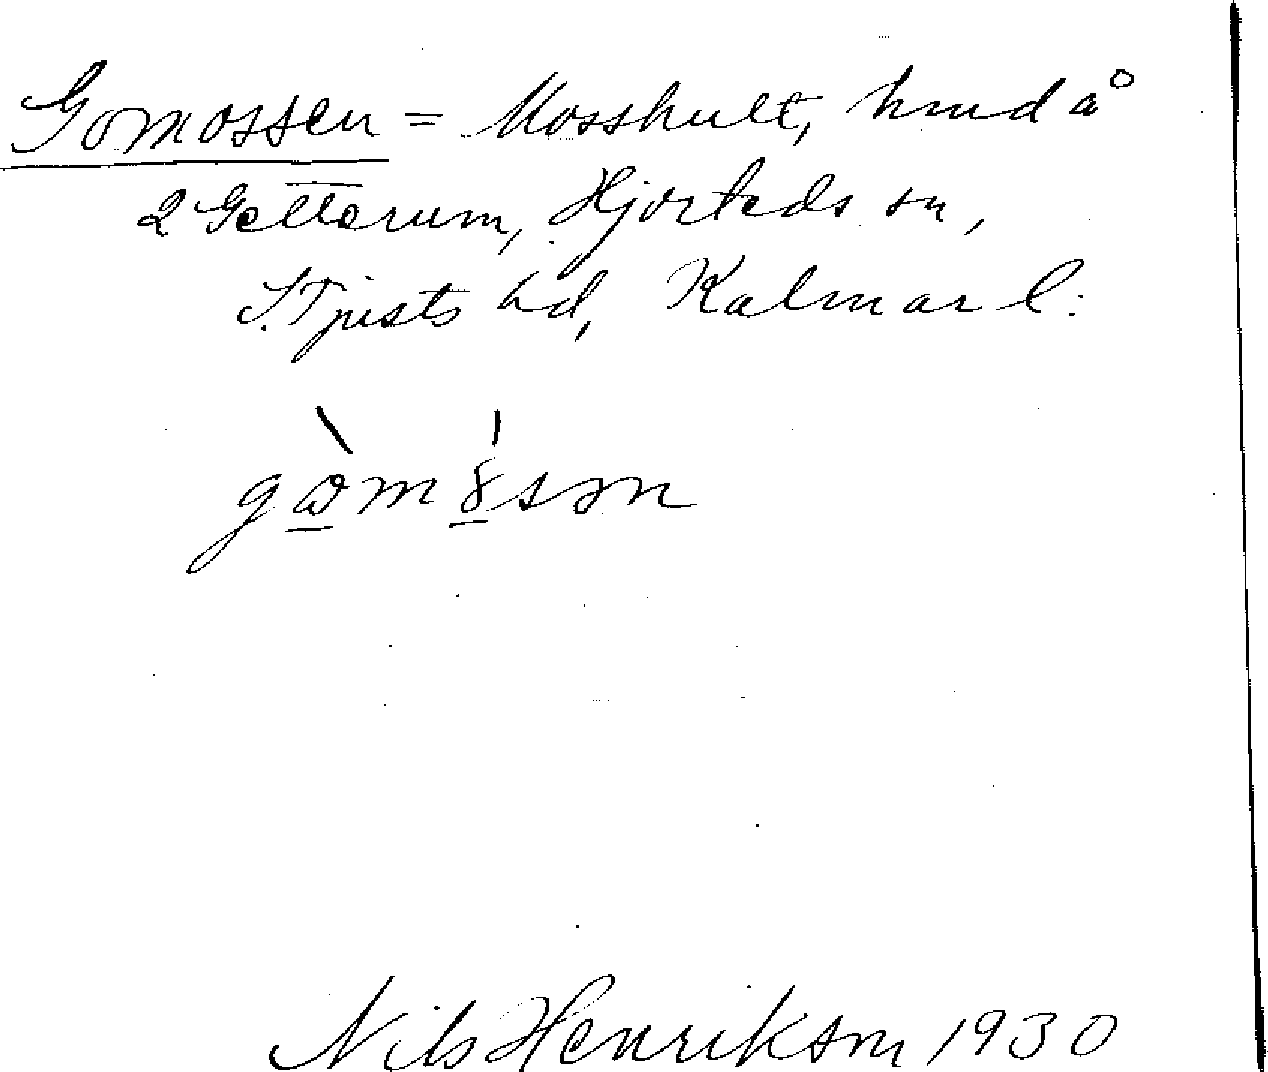 Gomossen = Mosshult, hmd å
2 Getterum, Hjorteds sn,
S. Tjusts hd, Kalmar l:
Nils Henrikson 1930